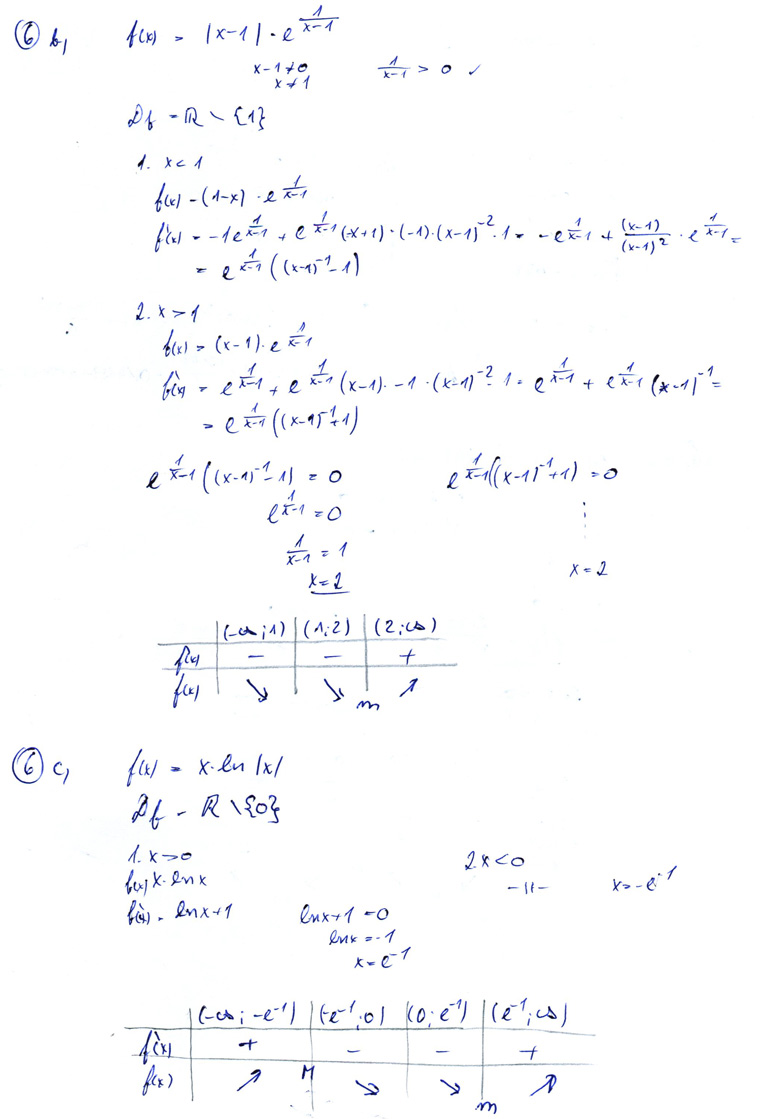 6 b, f(x) = |x-1| · e^{1/(x-1)}
x-1≠0 1/(x-1) > 0 ✓
x≠1
Df = ℝ \ {1}
1. x<1
f(x) = (1-x) · e^{1/(x-1)}
f'(x) = -1e^{1/(x-1)} + e^{1/(x-1)}(-x+1)·(-1)·(x-1)^{-2}·1 = -e^{1/(x-1)} + (x-1)/(x-1)^2 · e^{1/(x-1)} =
= e^{1/(x-1)}((x-1)^{-1}-1)
2. x>1
f(x) = (x-1)·e^{1/(x-1)}
f'(x) = e^{1/(x-1)} + e^{1/(x-1)}(x-1)·-1·(x-1)^{-2}·1 = e^{1/(x-1)} + e^{1/(x-1)}(x-1)^{-1} =
= e^{1/(x-1)}((x-1)^{-1}+1)
e^{1/(x-1)}((x-1)^{-1}-1) = 0 e^{1/(x-1)}((x-1)^{-1}+1) = 0
e^{1/(x-1)} = 0 ⋮
1/(x-1) = 1
x=2 x=2
(-∞;1) (1;2) (2;∞)
f'(x) - - +
f(x) ↘ ↘ m ↗
6 c, f(x) = x·ln|x|
Df = ℝ \{0}
1. x>0 2 x<0
f(x) = x·lnx -11- x=-e^{-1}
f'(x) = lnx+1 lnx+1=0
lnx=-1
x=e^{-1}
(-∞;-e^{-1}) (-e^{-1};0) (0;e^{-1}) (e^{-1};∞)
f'(x) + - - +
f(x) ↗ M ↘ ↘ m ↗